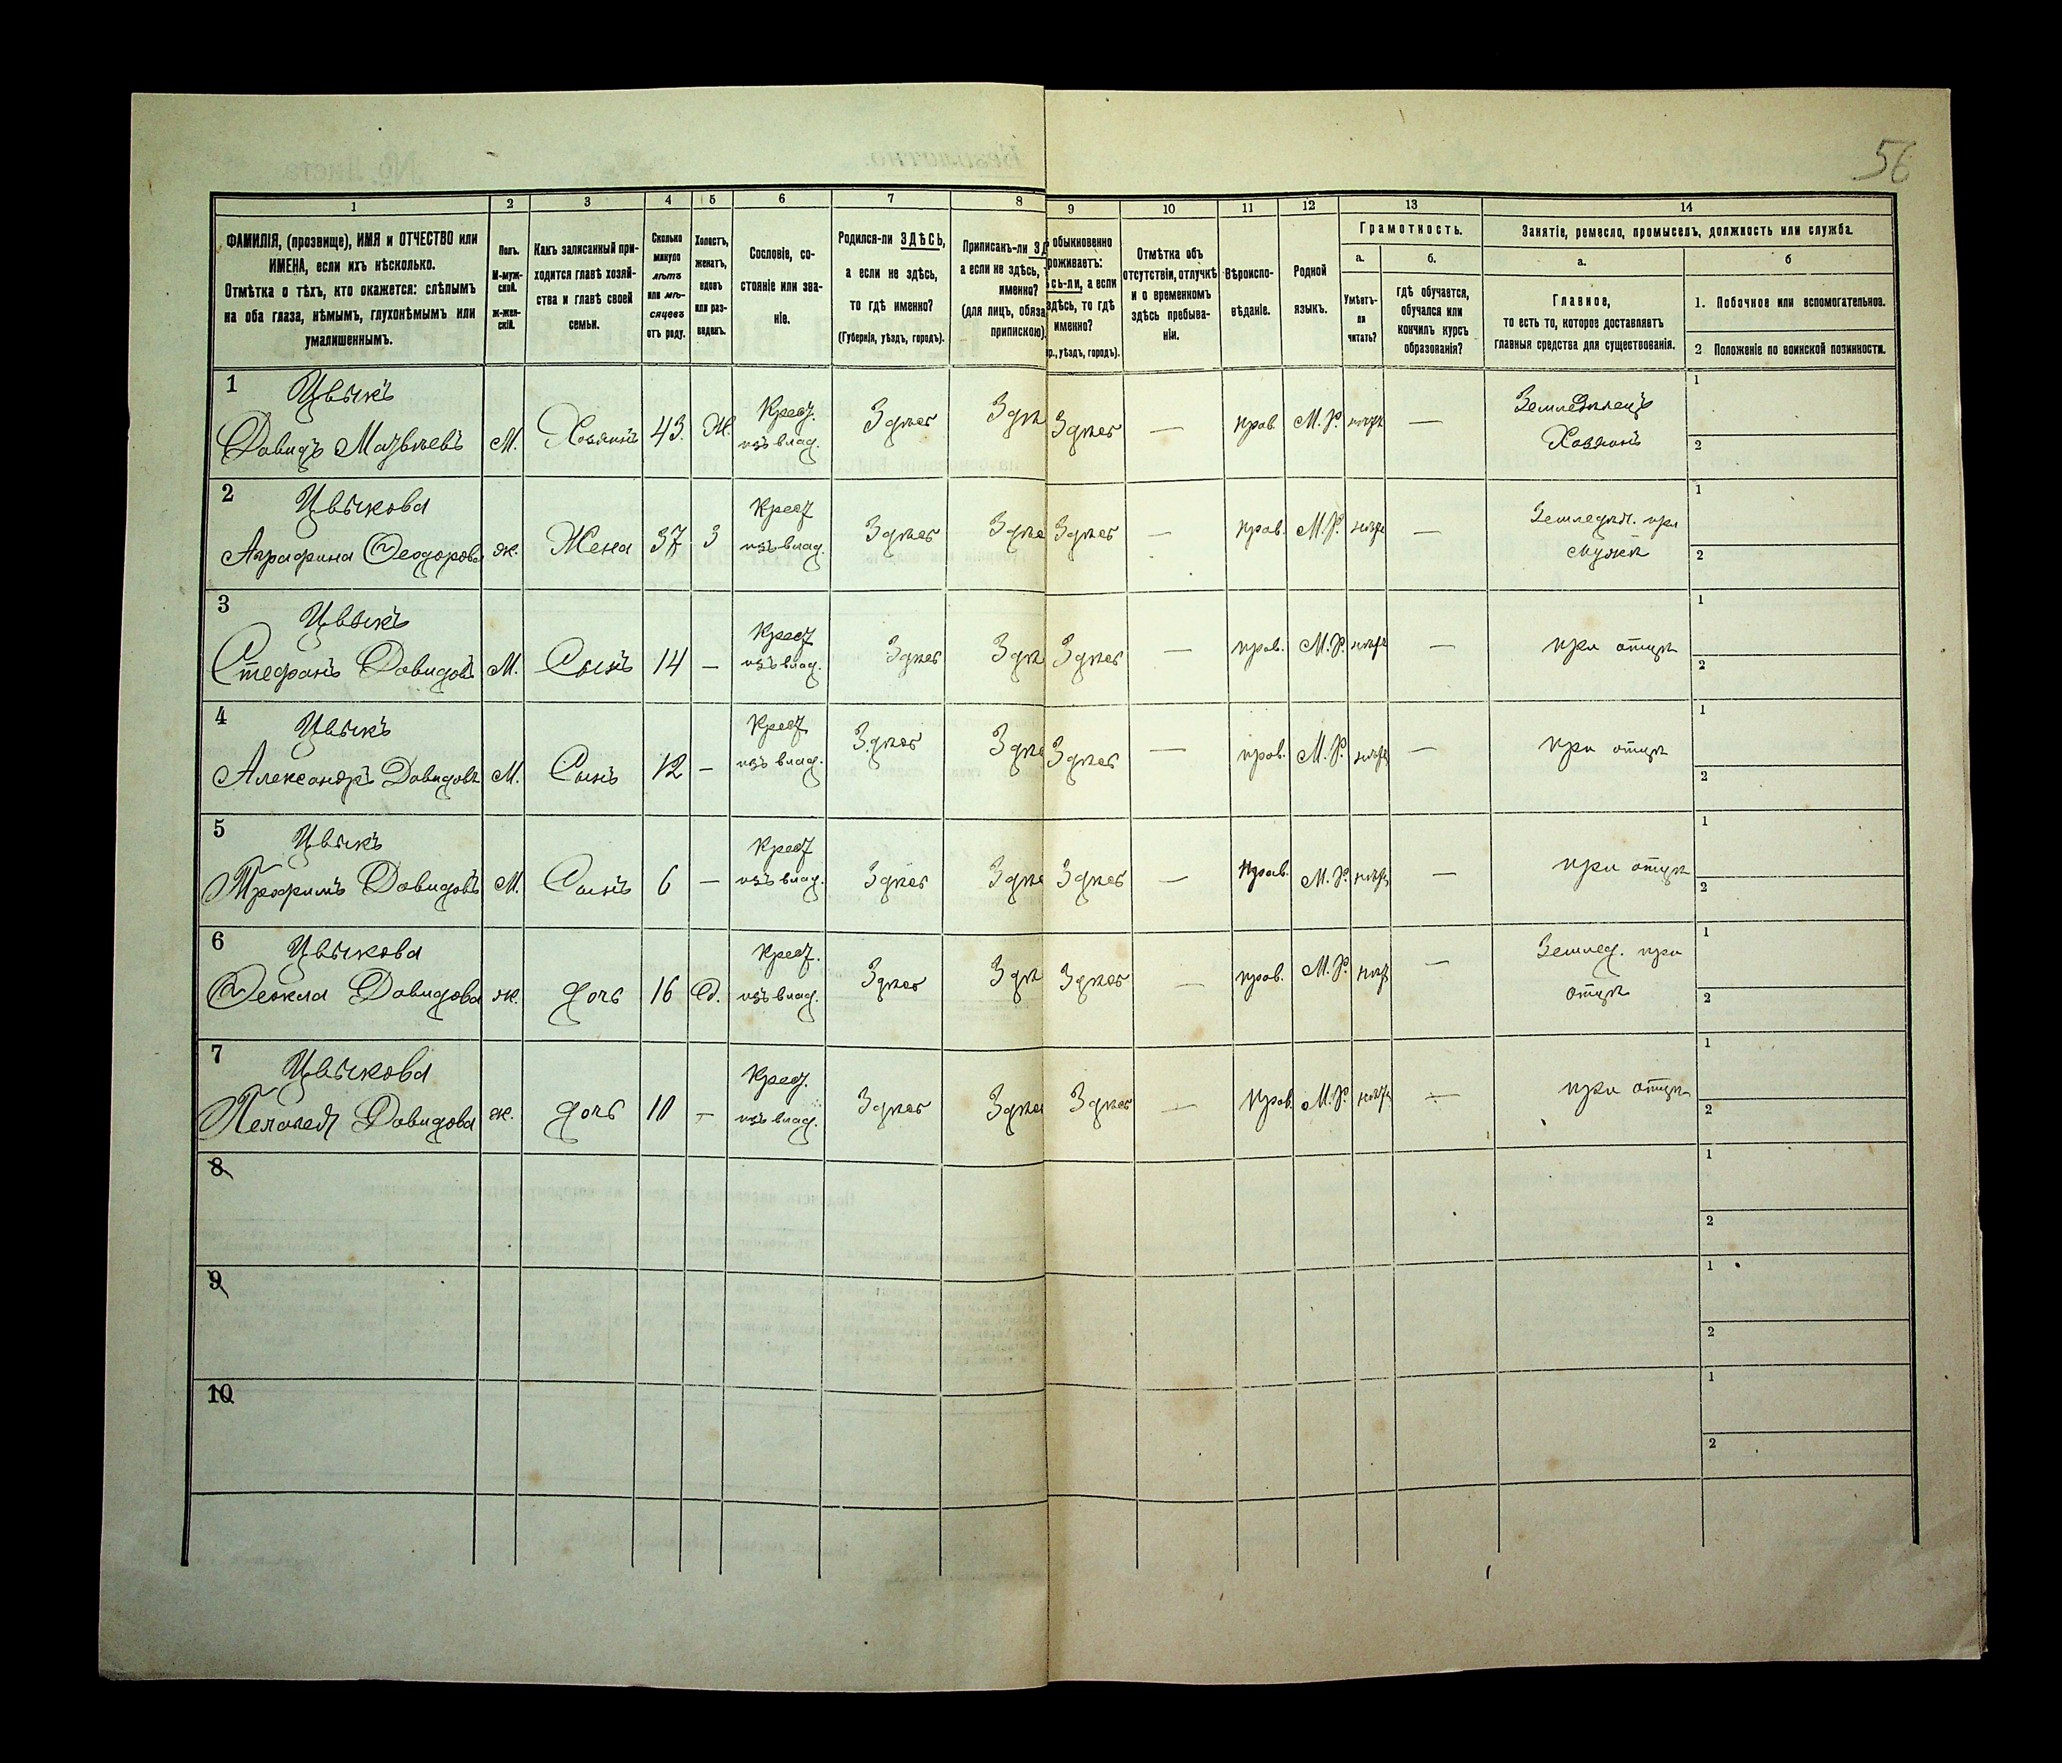 56
1 2 3 4 5 6 7 8 9 10 11 12 13 14
ФАМИЛІЯ, (прозвище), ИМЯ и ОТЧЕСТВО или
ИМЕНА, если ихъ нѣсколько.
Отмѣтка о тѣхъ, кто окажется: слѣпымъ
на оба глаза, нѣмымъ, глухонѣмымъ или
умалишеннымъ.
Полъ.
М-муж-
ской.
Ж-жен-
скій.
Какъ записанный при-
ходится главѣ хозяй-
ства и главѣ своей
семьи.
Сколько
минуло
лѣтъ
или мѣ-
сяцевъ
отъ роду.
Холостъ,
женатъ,
вдовъ
или раз-
веденъ.
Сословіе, со-
стояніе или зва-
ніе.
Родился-ли ЗДѢСЬ,
а если не здѣсь,
то гдѣ именно?
(Губернія, уѣздъ, городъ).
Приписанъ-ли ЗД
а если не здѣсь,
именно?
(для лицъ, обяза
припискою)
обыкновенно
роживаетъ:
сь-ли, а если
здѣсь, то гдѣ
именно?
р., уѣздъ, городъ).
Отмѣтка объ
отсутствіи, отлучкѣ
и о временномъ
здѣсь пребыва-
ніи.
Вѣроиспо-
вѣданіе.
Родной
языкъ.
Грамотность.
а.
Умѣетъ-
ли
читать?
б.
гдѣ обучается,
обучался или
кончилъ курсъ
образованія?
Занятіе, ремесло, промыселъ, должность или служба.
а.
Главное,
то есть то, которое доставляетъ
главныя средства для существованія.
б
1. Побочное или вспомогательное.
2 Положеніе по воинской повинности.
1 Цвыкъ
Давидъ Матвѣевъ М. Хозяинъ 43. Ж. Крест. изъ влад. Здѣсь Здѣ Здѣсь — прав М. Р. нѣтъ — Земледѣлецъ Хозяинъ 1 2
2 Цвыкова
Аграфина Ѳеодорова ж. Жена 37 З Крест изъ влад. Здѣсь Здѣс Здѣсь — прав. М. Р. нѣтъ — Земледѣл. при мужѣ 1 2
3 Цвыкъ
Стефанъ Давидовъ М. Сынъ 14 — Крест изъ влад. Здѣсь Здѣ Здѣсь — прав. М. Р. нѣтъ — при отцѣ 1 2
4 Цвыкъ
Александръ Давидовъ М. Сынъ 12 — Крест изъ влад. Здѣсь Здѣс Здѣсь — прав. М. Р. нѣтъ — при отцѣ 1 2
5 Цвыкъ
Трофимъ Давидовъ М. Сынъ 6 — Крест изъ влад. Здѣсь Здѣс Здѣсь — прав. М. Р. нѣтъ — при отцѣ 1 2
6 Цвыкова
Ѳекла Давидова ж. дочь 16 Крест. изъ влад. Здѣсь Здѣ Здѣсь — прав. М. Р. нѣтъ — Землед. при отцѣ 1 2
7 Цвыкова
Пелагея Давидова ж. дочь 10 — Крест. изъ влад. Здѣсь Здѣс Здѣсь — прав. М. Р. нѣтъ — при отцѣ 1 2
8 1 2
9 1 2
10 1 2